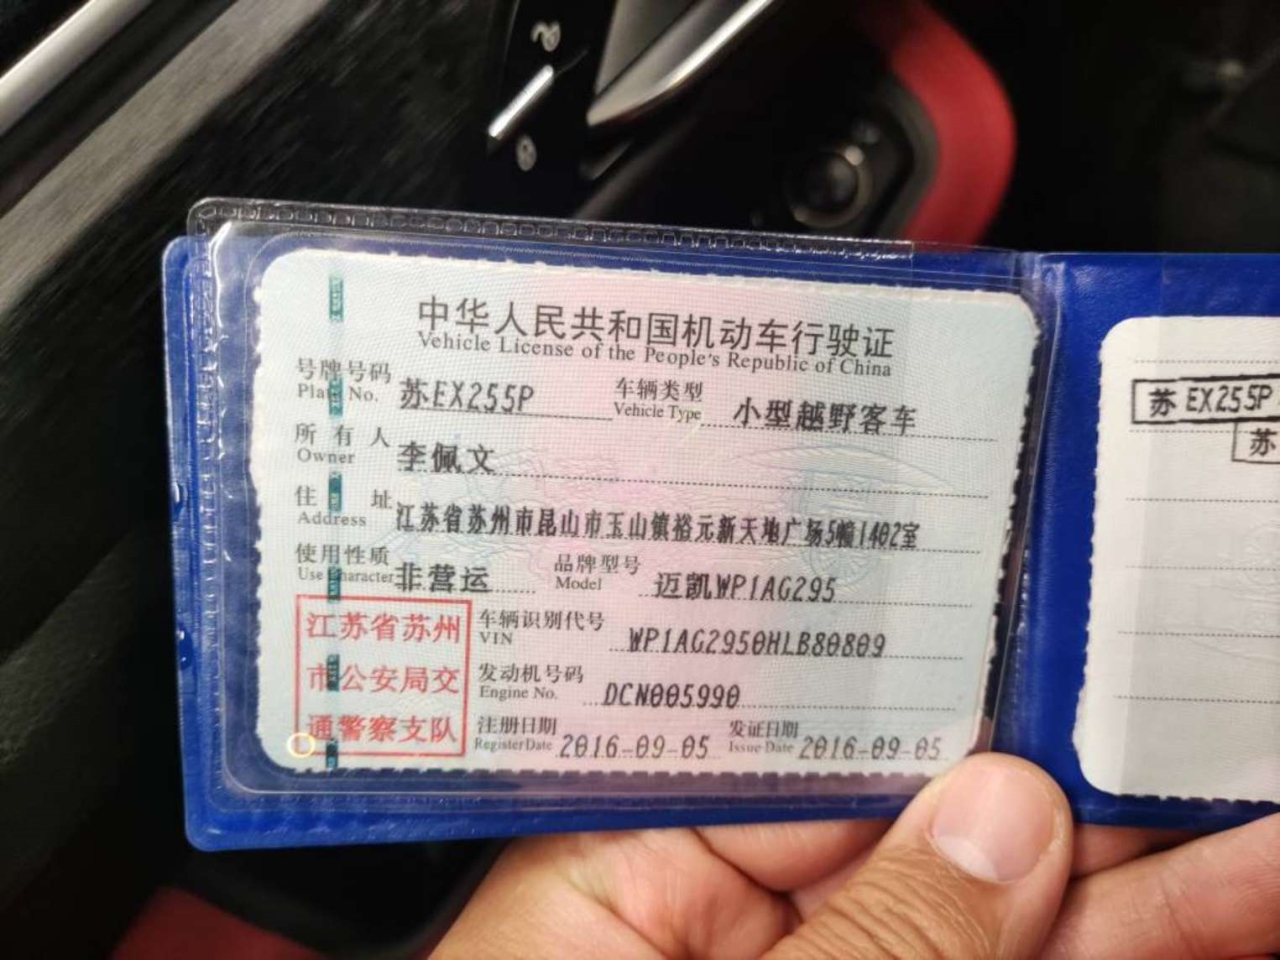 中华人民共和国机动车行驶证
Vehicle License of the People's Republic of China
号牌号码 苏EX255P 车辆类型 小型越野客车
Plate No. Vehicle Type
所有人 李佩文
Owner
住址 江苏省苏州市昆山市玉山镇裕元新天地广场5幢1402室
Address
使用性质 非营运 品牌型号 迈凯WP1AG295
Use Character Model
江苏省苏州
市公安局交
通警察支队
车辆识别代号 WP1AG2950HLB80809
VIN
发动机号码 DCN005990
Engine No.
注册日期 2016-09-05 发证日期 2016-09-05
Register Date Issue Date
苏EX255P
苏